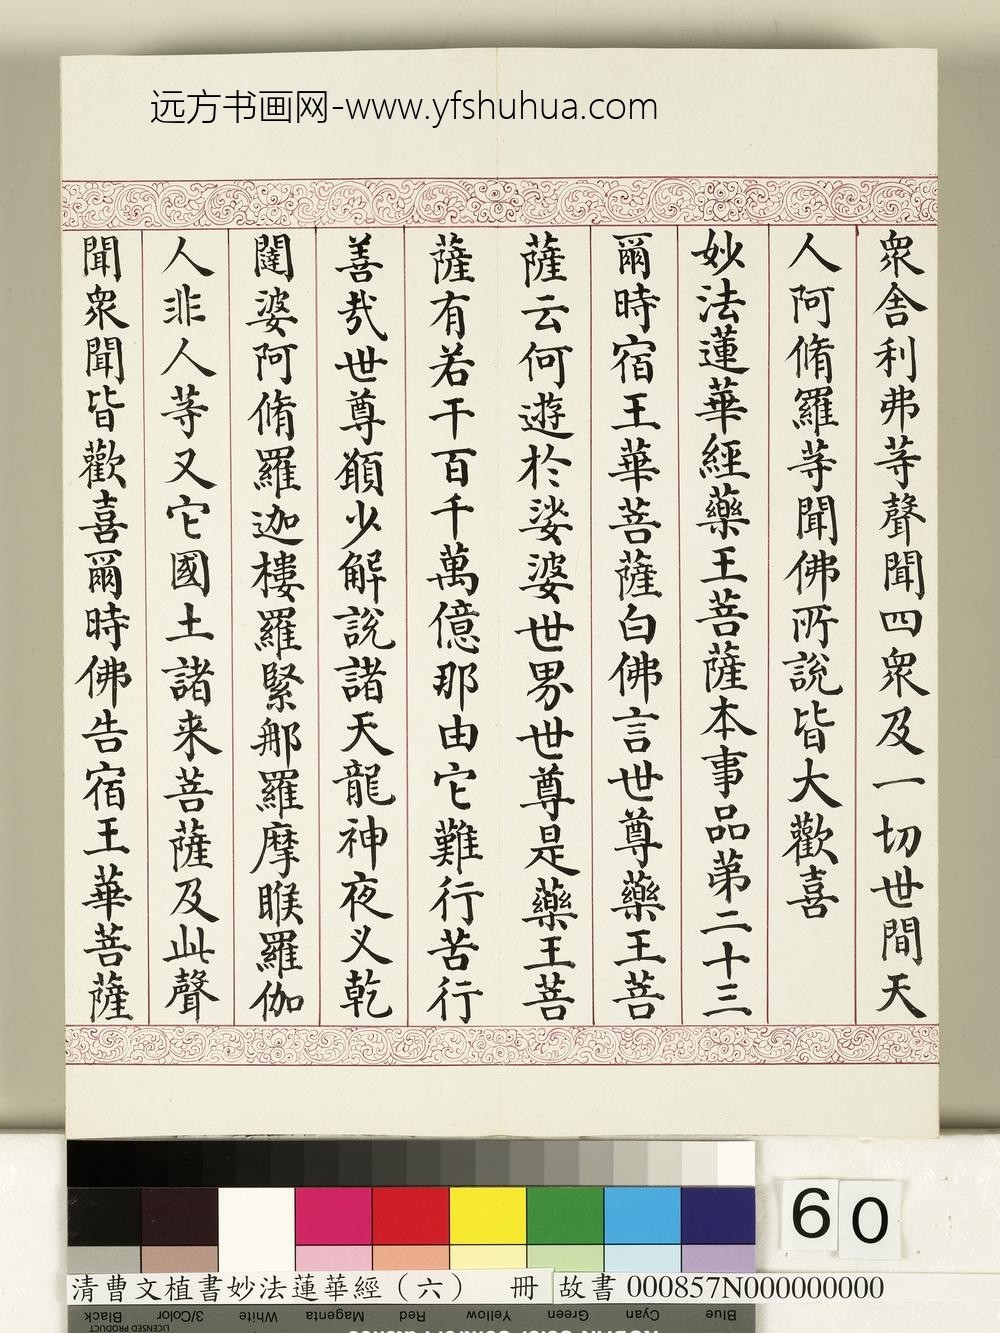 远方书画网-www.yfshuhua.com
眾舍利弗等聲聞四眾及一切世間天
人阿脩羅等聞佛所說皆大歡喜
妙法蓮華經藥王菩薩本事品第二十三
爾時宿王華菩薩白佛言世尊藥王菩
薩云何遊於娑婆世界世尊是藥王菩
薩有若干百千萬億那由它難行苦行
善哉世尊願少解說諸天龍神夜义乾
闥婆阿脩羅迦樓羅緊那羅摩睺羅伽
人非人等又它國土諸来菩薩及此聲
聞眾聞皆歡喜爾時佛告宿王華菩薩
60
清曹文植書妙法蓮華經（六） 冊 故書 000857N000000000
Blue Cyan Green Yellow Red Magenta White 3/Color Black
LICENSED PRODUCT